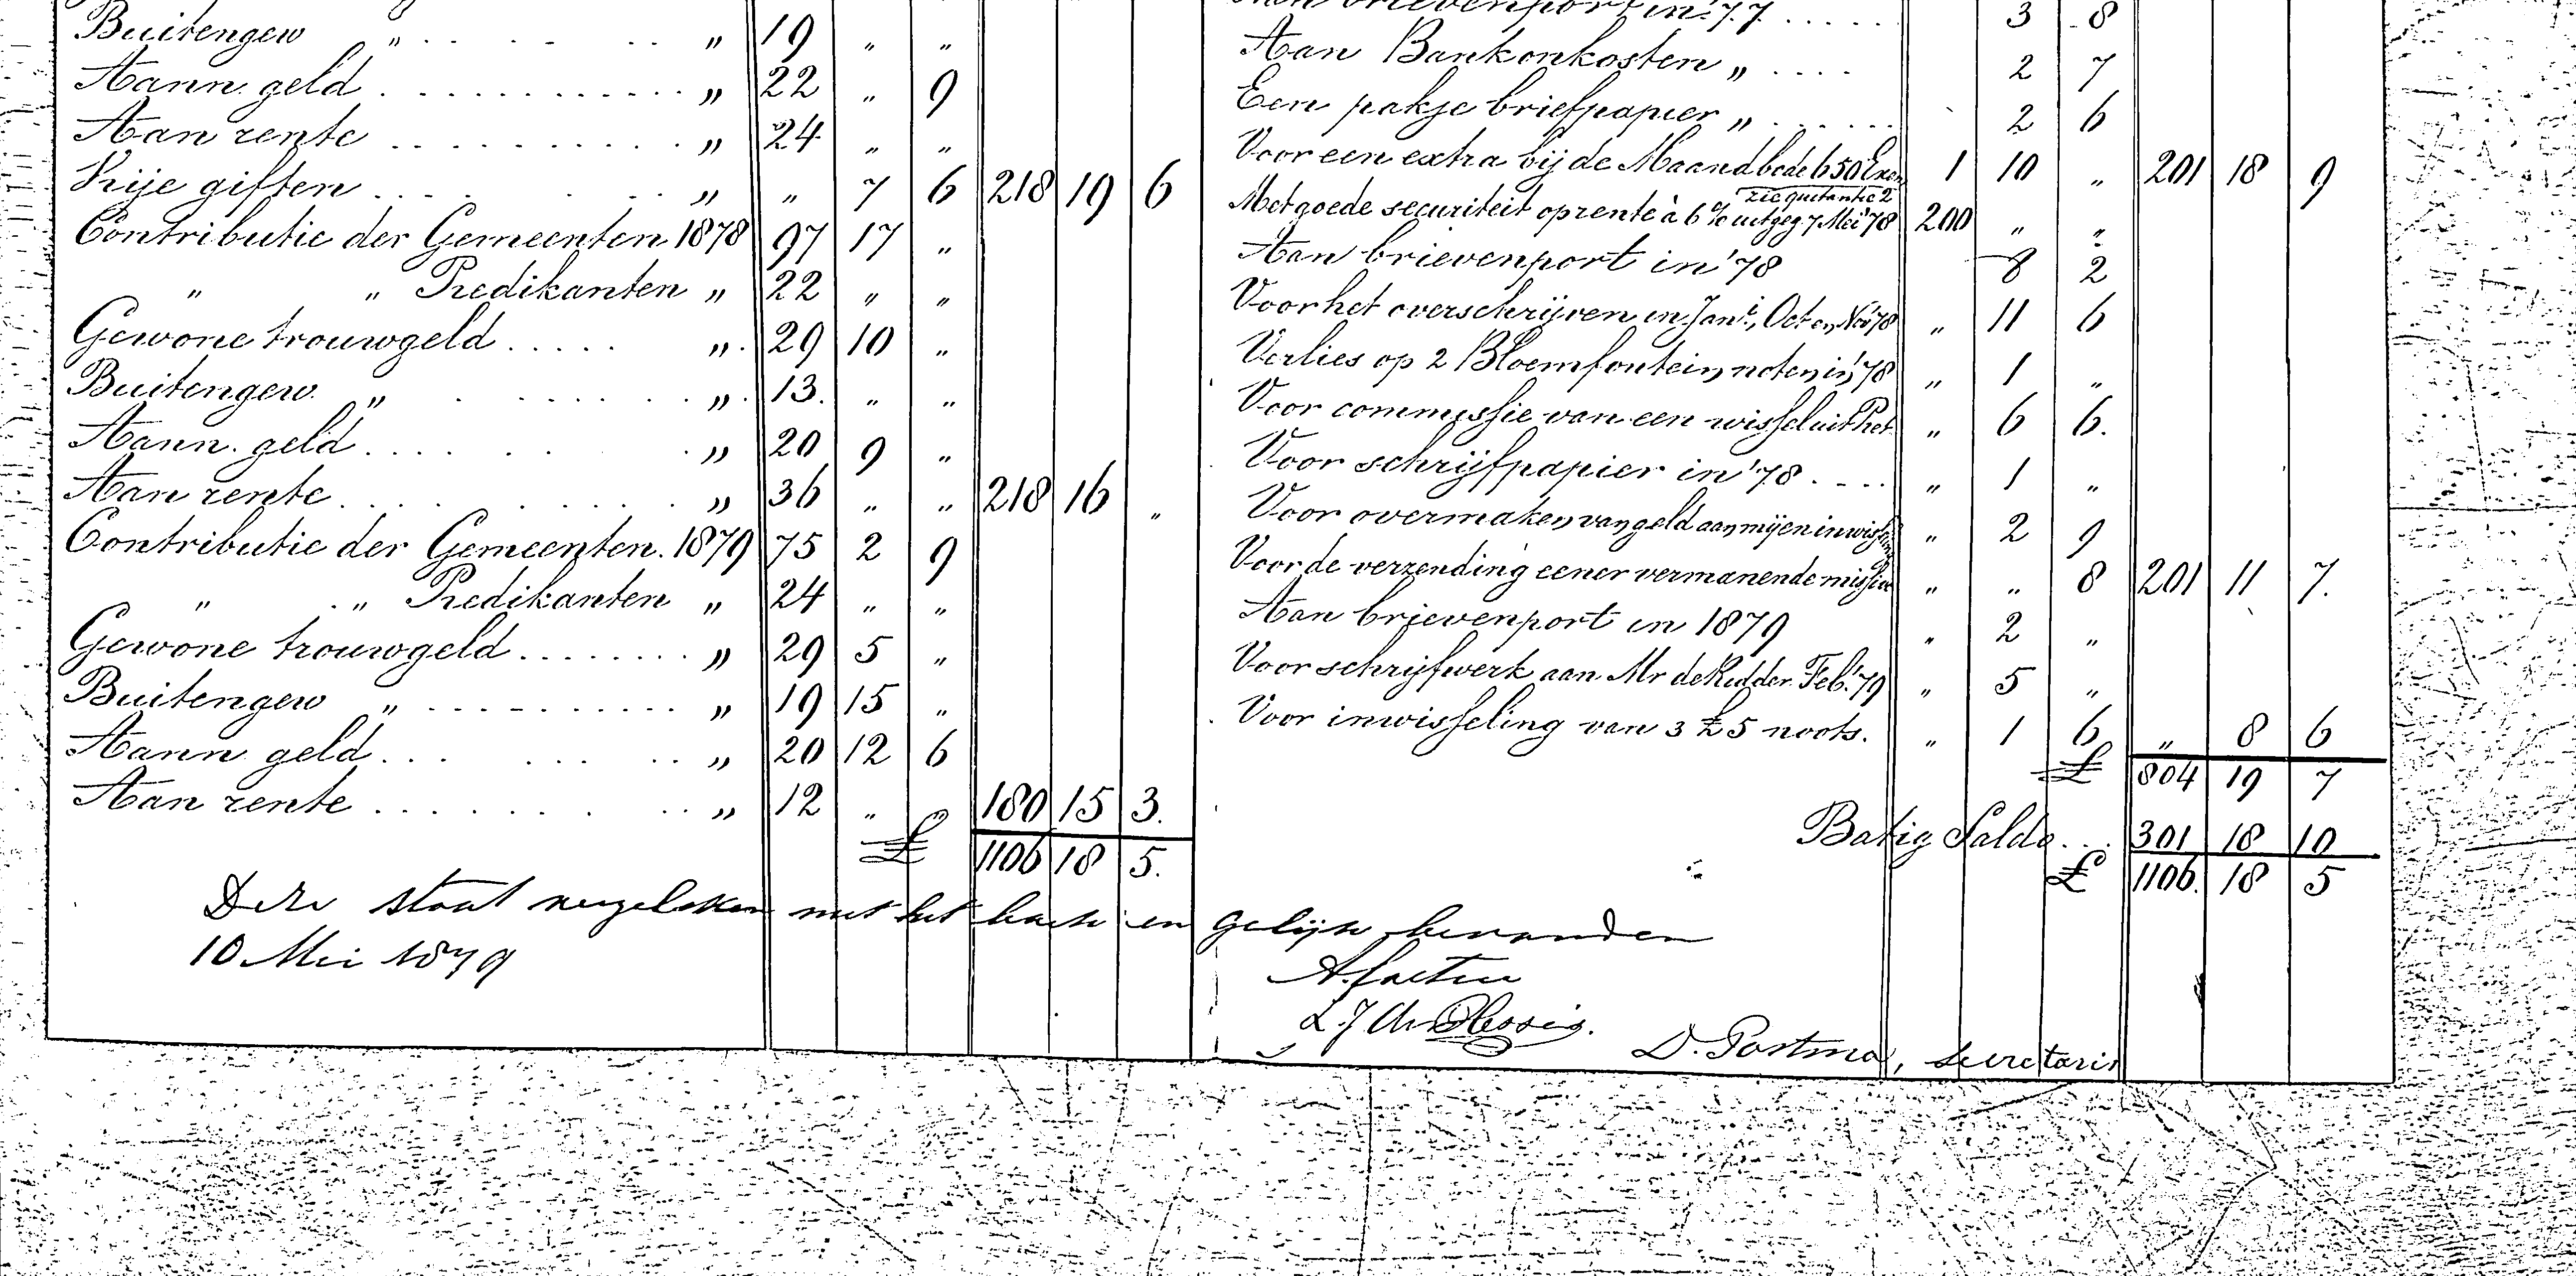 Buitengew " . . - . . " 19 " "
Aann. geld . . . . . . . . . . . . " 22 " 9
Aan rente . . . . . . . . . . " 24 " "
Vrije giften . . . . . . " " 7 6 218 19 6
Contributie der Gemeenten 1878 97 17 "
" " Predikanten " 22 " "
Gewone trouwgeld . . . . . " 29 10 "
Buitengew. " . . . . . . " 13. " "
Aann. geld . . . . . . . " 20 9 "
Aan rente . . . . . . . . . " 36 " " 218 16 "
Contributie der Gemeenten. 1879 75 2 9
" " Predikanten " 24 " "
Gewone trouwgeld . . . . . . . . " 29 5 "
Buitengew " . . . . . . . . . . " 19 15 "
Aann geld . . . . . . . . " 20 12 6
Aan rente . . . . . . . . . " 12 " " 180 15 3.
£ 1106 18 5.
Aan brievenport in '77 . . . . . 3 8
Aan Bankonkosten " . . . . 2 7
Een pakje briefpapier " . . . . . . 2 6
Voor een extra bij de Maandbode 650 Exen 1 10 " 201 18 9
zie quitantie 2
Met goede securiteit op rente à 6 % uitgeg 7 Mei '78 200 " "
Aan brievenport in '78 8 2
Voor het overschrijven in Jani., Oct en Nov '78 " 11 6
Verlies op 2 Bloemfontein noten in '78 " 1 "
Voor commissie van een wissel uit Piet. " 6 6.
Voor schrijfpapier in '78 . . . . " 1 "
Voor overmaken van geld aan mij en " 2 9
Voor de verzending eener vermanende missive " " 8 201 11 7.
Aan brievenport in 1879 " 2 "
Voor schrijfwerk aan Mr de Ridder Feb. '79 " 5 "
Voor inwisseling van 3 £5 noots. " 1 6 " 8 6
£ 804 19 7
Batig Saldo . . . 301 18 10
£ 1106. 18 5
Deze staat vergeleken met het boek en gelijk bevonden
10 Mei 1879
L. J du Plessis.
D. Postma, secretaris